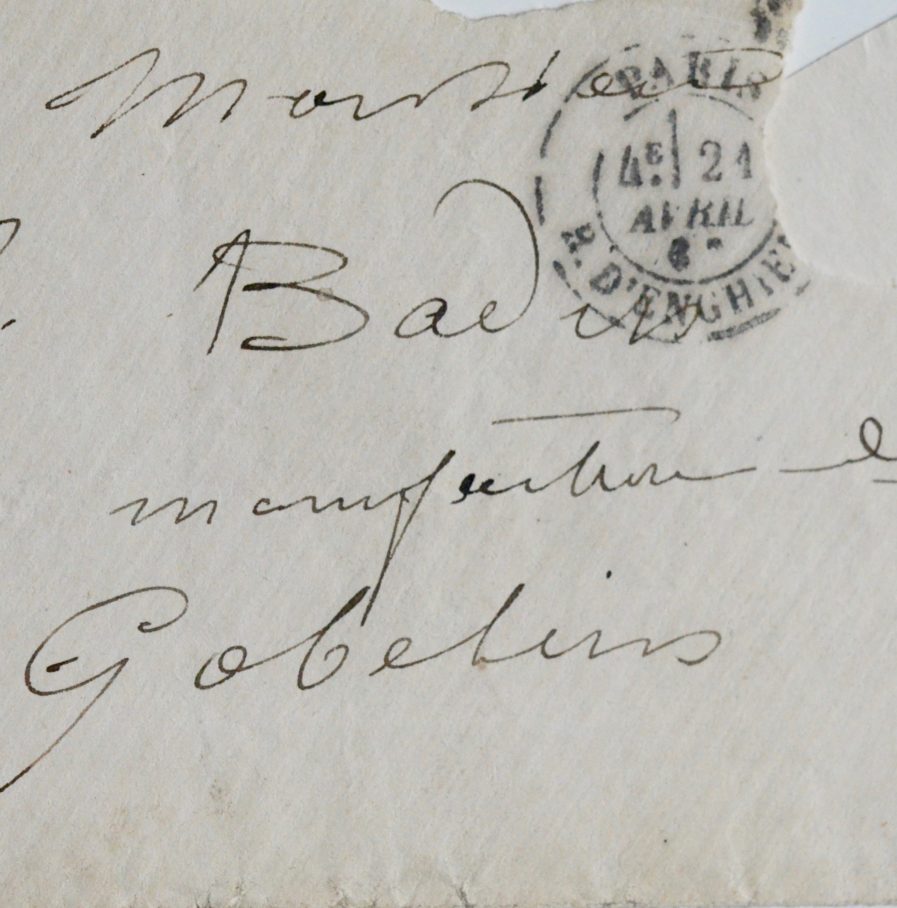 Monsieur
Badin
manufacture
Gobelins
PARIS
4E 21
AVRIL
R. D'ENGHIEN